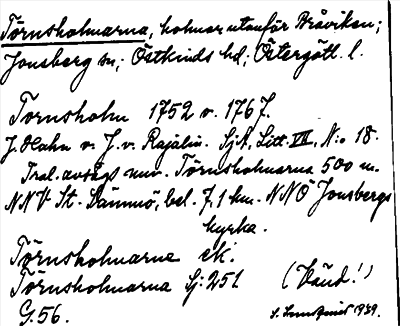 Törnsholmarna, holmar utanför Bråviken;
Jonsberg sn; Östkinds hd; Östergötl. l.
Tornsholm 1752 o. 1767.
J. Hahn o. J. v. Rajalin. Sjk, Litt. VII, N:o 18.
Trol. avsågs nuv. Törnsholmarna 500 m.
NNV St. Lämmö, bel. 7,1 km. NNO Jonsbergs
kyrka.
Törnsholmarna ek.
Törnsholmarna Sj: 251 (Vänd!)
G. 56.
S. Lundqvist 1939.